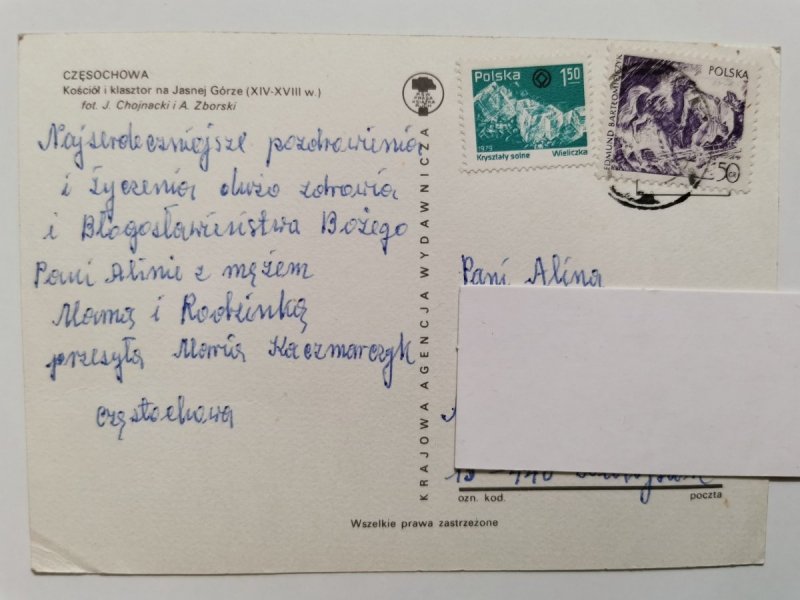 CZĘSOCHOWA
Kościół i klasztor na Jasnej Górze (XIV-XVIII w.)
fot. J. Chojnacki i A. Zborski
Najserdeczniejsze pozdrowienia
i życzenia dużo zdrowia
i Błogosławieństwa Bożego
Pani Alinie z mężem
Mamą i Rodzinką
przesyła Maria Kaczmarczyk
Częstochowa
KRAJOWA AGENCJA WYDAWNICZA
Polska 1,50
1979 Kryształy solne Wieliczka
POLSKA
EDMUND BARTŁOMIEJCZYK
50
Pani Alina
ozn. kod. poczta
Wszelkie prawa zastrzeżone